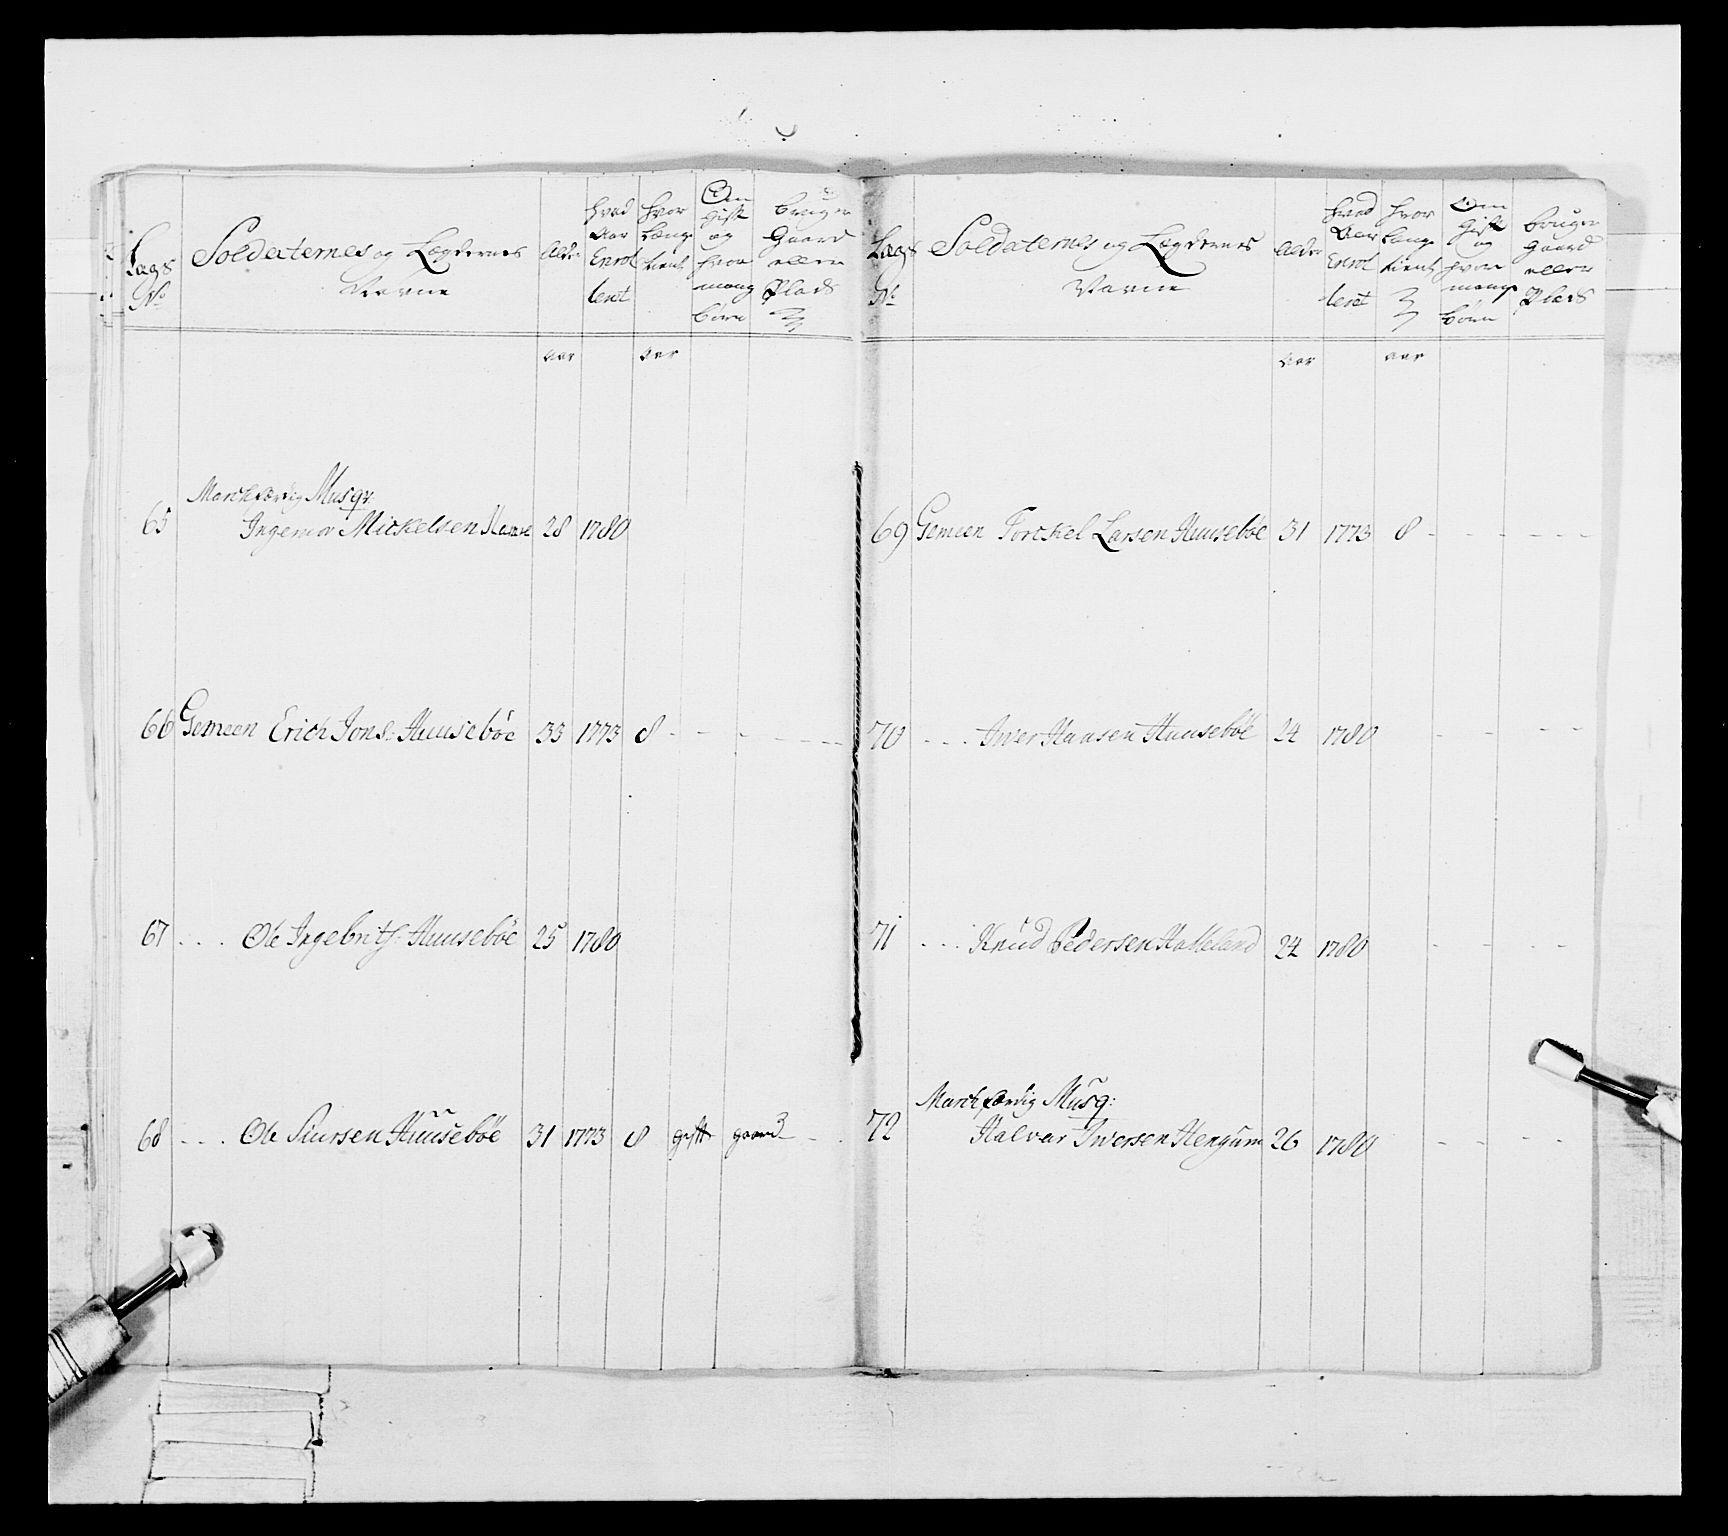 Lægs No
Soldaternes og Lægdernes Navne
Alder
hvad Aar Enrolleret
hvor længe tient
Om gift og hvor mange børn
bruger Gaard eller Plads
aar aar
65 Marchfærdig Musqr:
Ingemor Mickelsen 28 1780
66 Gemeen Erich Jons: Huusebøe 33 1773 8 - - - - -
67 . . . Ole Ingebrits: Huusebøe 25 1780
68 - - - Ole Siursen Huusebøe 31 1773 8 gift gaard - -
Lægs No
Soldaternes og Lægdernes Navne
Alder
hvad Aar Enrolleret
hvor længe tient
Om gift og hvor mange børn
bruger Gaard eller Plads
aar aar
69 Gemeen Torckel Larsen Huusebøe 31 1773 8 - - - - - -
70 - - - Iwer Hansen Huusebøe 24 1780 - - - -
71 - - - Knud Pedersen Halleland 24 1780 - - - -
72 Marchfærdig Musq:
Halvar Iwersen Hengum 26 1780 - - - -